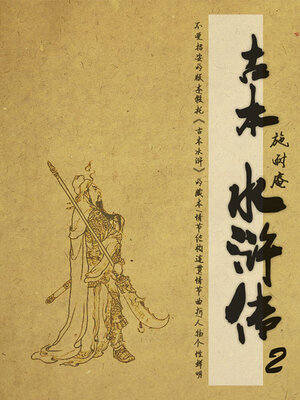 古本
水浒传
2
施耐庵
不受招安的版本《古本水浒》的藏本情节结构连贯情节曲折人物个性鲜明